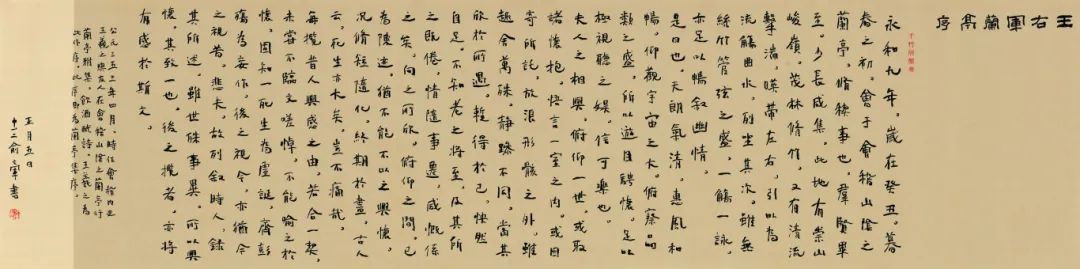 王右軍蘭亭序
永和九年，歲在癸丑，暮
春之初，會于會稽山陰之
蘭亭，脩稧事也。群賢畢
至，少長咸集。此地有崇山
峻嶺，茂林脩竹，又有清流
擊湍，暎帶左右，引以為
流觴曲水，列坐其次。雖無
絲竹管弦之盛，一觴一詠，
亦足以暢叙幽情。
是日也，天朗氣清，惠風和
暢，仰觀宇宙之大，俯察品
類之盛，所以遊目騁懷，足以
極視聽之娛，信可樂也。
夫人之相與，俯仰一世，或取
諸懷抱，悟言一室之內，或因
寄所託，放浪形骸之外。雖
趣舍萬殊，靜躁不同，當其
欣於所遇，蹔得於己，怏然
自足，不知老之將至。及其所
之既倦，情隨事遷，感慨係
之矣。向之所欣，俯仰之間，已
為陳迹，猶不能不以之興懷，
況脩短隨化，終期於盡。古人
云，死生亦大矣，豈不痛哉。
每攬昔人興感之由，若合一契，
未嘗不臨文嗟悼，不能喻之於
懷。固知一死生為虛誕，齊彭
殤為妄作。後之視今，亦猶今
之視昔，悲夫。故列叙時人，錄
其所述，雖世殊事異，所以興
懷，其致一也。後之攬者，亦將
有感於斯文。
公元三五三年四月，時任會稽內史
王羲之與友人在會稽山陰之蘭亭行
蘭亭雅集，飲酒賦詩，王羲之為
此作序，此序即為蘭亭集序。
正月五日
十二俞
書